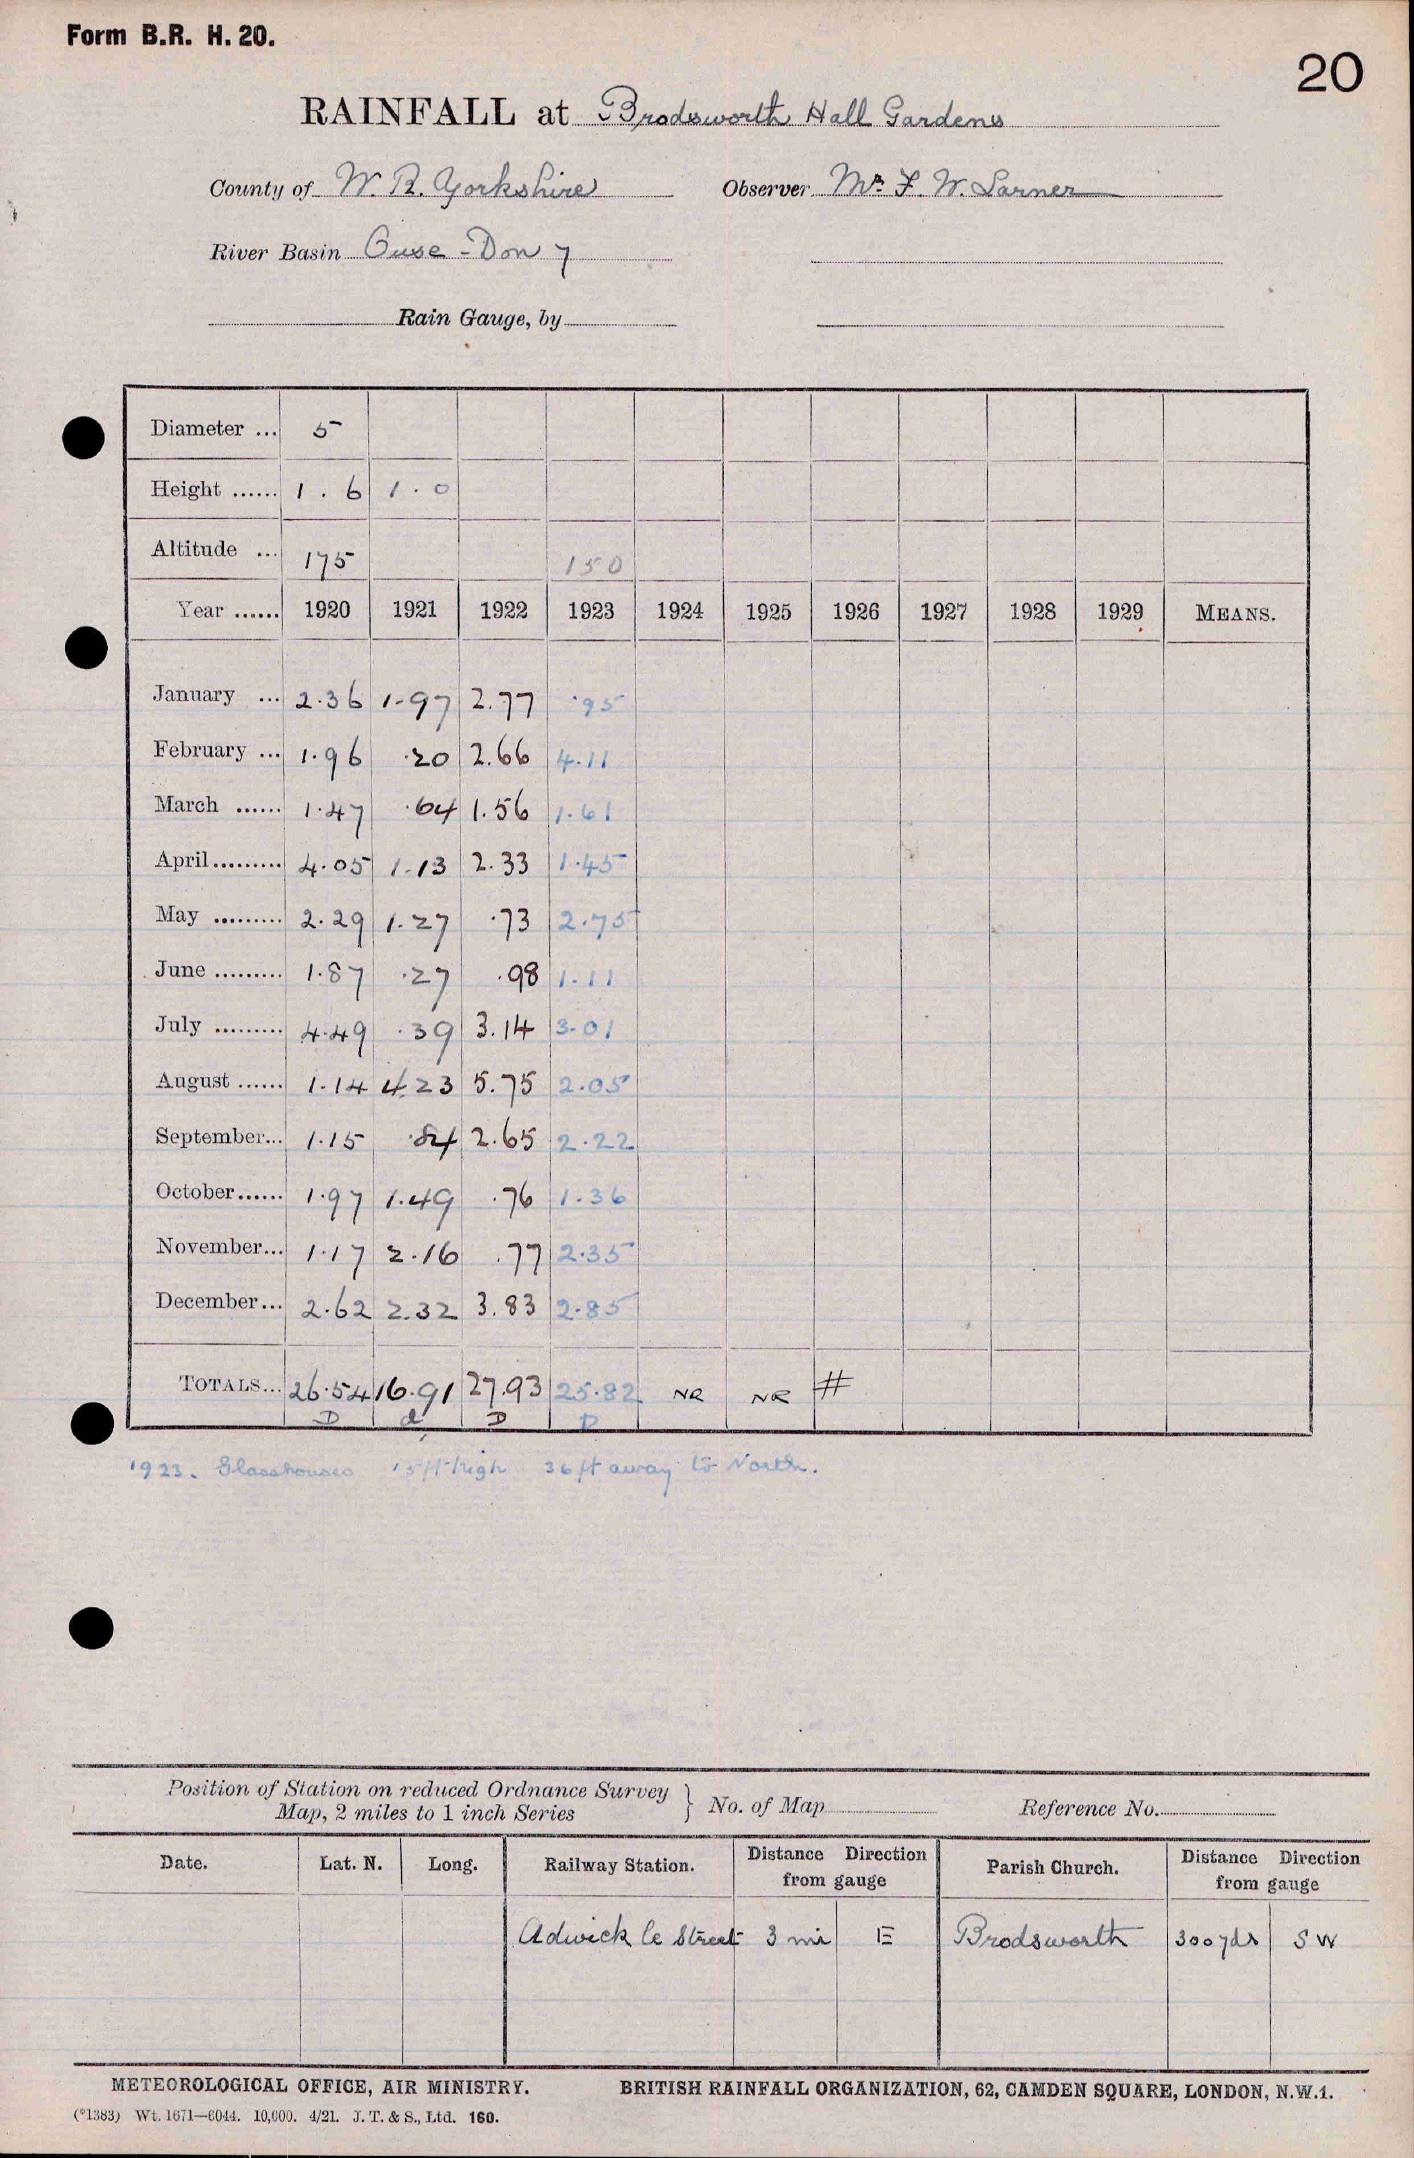 Form B.R. H. 20.
20
RAINFALL at Brodsworth Hall Gardens
County of W. R. Yorkshire Observer Mr. F. W. Larner
River Basin Ouse - Don 7
Rain Gauge, by
Diameter ... 5
Height ...... 1 . 6 1 . 0
Altitude ... 175 150
Year ...... 1920 1921 1922 1923 1924 1925 1926 1927 1928 1929 MEANS.
January ... 2.36 1.97 2.77 .95
February ... 1.96 .20 2.66 4.11
March ...... 1.47 .64 1.56 1.61
April ......... 4.05 1.13 2.33 1.45
May ......... 2.29 1.27 .73 2.75
June ......... 1.87 .27 .98 1.11
July ......... 4.49 .39 3.14 3.01
August ...... 1.14 4.23 5.75 2.05
September... 1.15 .84 2.65 2.22
October...... 1.97 1.49 .76 1.36
November... 1.17 2.16 .77 2.35
December... 2.62 2.32 3.83 2.85
TOTALS... 26.54 16.91 27.93 25.82 NR NR #
D d D D
1923. Glasshouses 15ft high 36 ft away to North.
Position of Station on reduced Ordnance Survey
Map, 2 miles to 1 inch Series } No. of Map Reference No.
Date. Lat. N. Long. Railway Station. Distance Direction from gauge Parish Church. Distance Direction from gauge
Adwick le Street 3 mi E Brodsworth 300 yds S W
METEOROLOGICAL OFFICE, AIR MINISTRY. BRITISH RAINFALL ORGANIZATION, 62, CAMDEN SQUARE, LONDON, N.W.1.
(*1383) Wt. 1671—6044. 10,000. 4/21. J. T. & S., Ltd. 160.